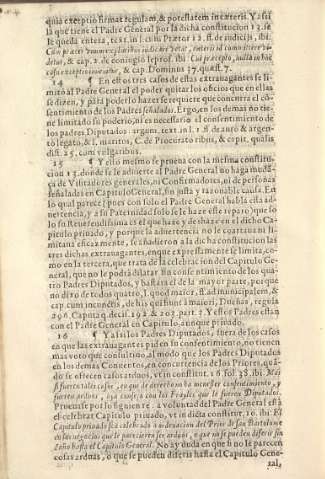 quia exceptio firmat regulam, & potestatem in cæteris. Y assi
la que tiene el Padre General por la dicha constitucion 13. se
le queda entera, text. in l. cum Præter 12. ff. de iudicijs, ibi:
& cap. 2. de coniugio leprof. ibi:
& cap. Dominus 17. quæst. 7.
14 ¶ En estos tres casos de estas extrauagantes se li-
mitò al Padre General el poder quitar los oficios que en ellas
se dizen, y para poderlo hazer se requiere que concurra el co-
sentimiento de los Padres señalados. Ergo, en los demas no tie-
ne limitado su poderio, ni es necessario el consentimiento de
los padres Diputados argum. text. in l. 1. ff. de auro & argen-
to legato, & l. maritos, C. de Procuratoribus, & capit. quasis
dist. 25. cum vulgaribus.
15 ¶ Y esto mesmo se prueua con la mesma constitu-
cion 13. donde se le aduierte al Padre General no haga mudã-
ça de Visitadores generales, ni Confirmadores, ni de personas
señaladas en Capitulo General, sin justa y razonable causa. En
lo qual parece (pues con solo el Padre General habla esta ad-
uertencia, y a su Paternidad solo se le haze este reparo) que so
lo su Reuerendissima es el que haze y deshaze en el dicho Ca-
pitulo priuado, y porque la aduertencia no le coartaua ni li-
mitaua eficazmente, se añadieron a la dicha constitucion las
tres dichas extrauagantes, en que expressamente se limita, co-
mo en la tercera, que trata de la celebracion del Capitulo Ge-
neral, que no le podrà dilatar sin consentimiento de los qua-
tro Padres Diputados, y bastarà el de la mayor parte, porque
no dixo de todos quatro, l. quod maior, ff. ad municipalem, &
cap. cum incundis, de his qui fiunt à maiori, Dueñas, regula
296. Caputaq. decis. 192. & 203. part. 3. Y estos Padres estan
con el Padre General en Capitulo, aunque priuado.
16 ¶ Y assi los Padres Diputados, fuera de los casos
en que las extrauagantes piden su consentimiento, no tienen
mas voto que consultiuo, al modo que los Padres Diputados
en los demas Conuentos, en concurrencia de los Priores, quã-
do se ofrecen casos arduos, vt in constitut. 16. fol. 38. ibi: Mas
si fueren tales casos, en que de derecho es menester consentimiento, y
fueren arduos, oya consejo con los Frayles que le fueren Diputados.
Procurase por lo siguiente a voluntad del Padre General està
el celebrar Capitulo priuado, vt in dicta constitut. 10. ibi: El
Capitulo priuado sea celebrado à ordenacion del Prior de San Bartolome
en los negocios que le pareciere ser arduos, o que no se pueden diferir sin
daño hasta el Capitulo General. No ay duda en que si no le parecen
cosas arduas, o que se pueden diferir hasta el Capitulo Gene-
ral,